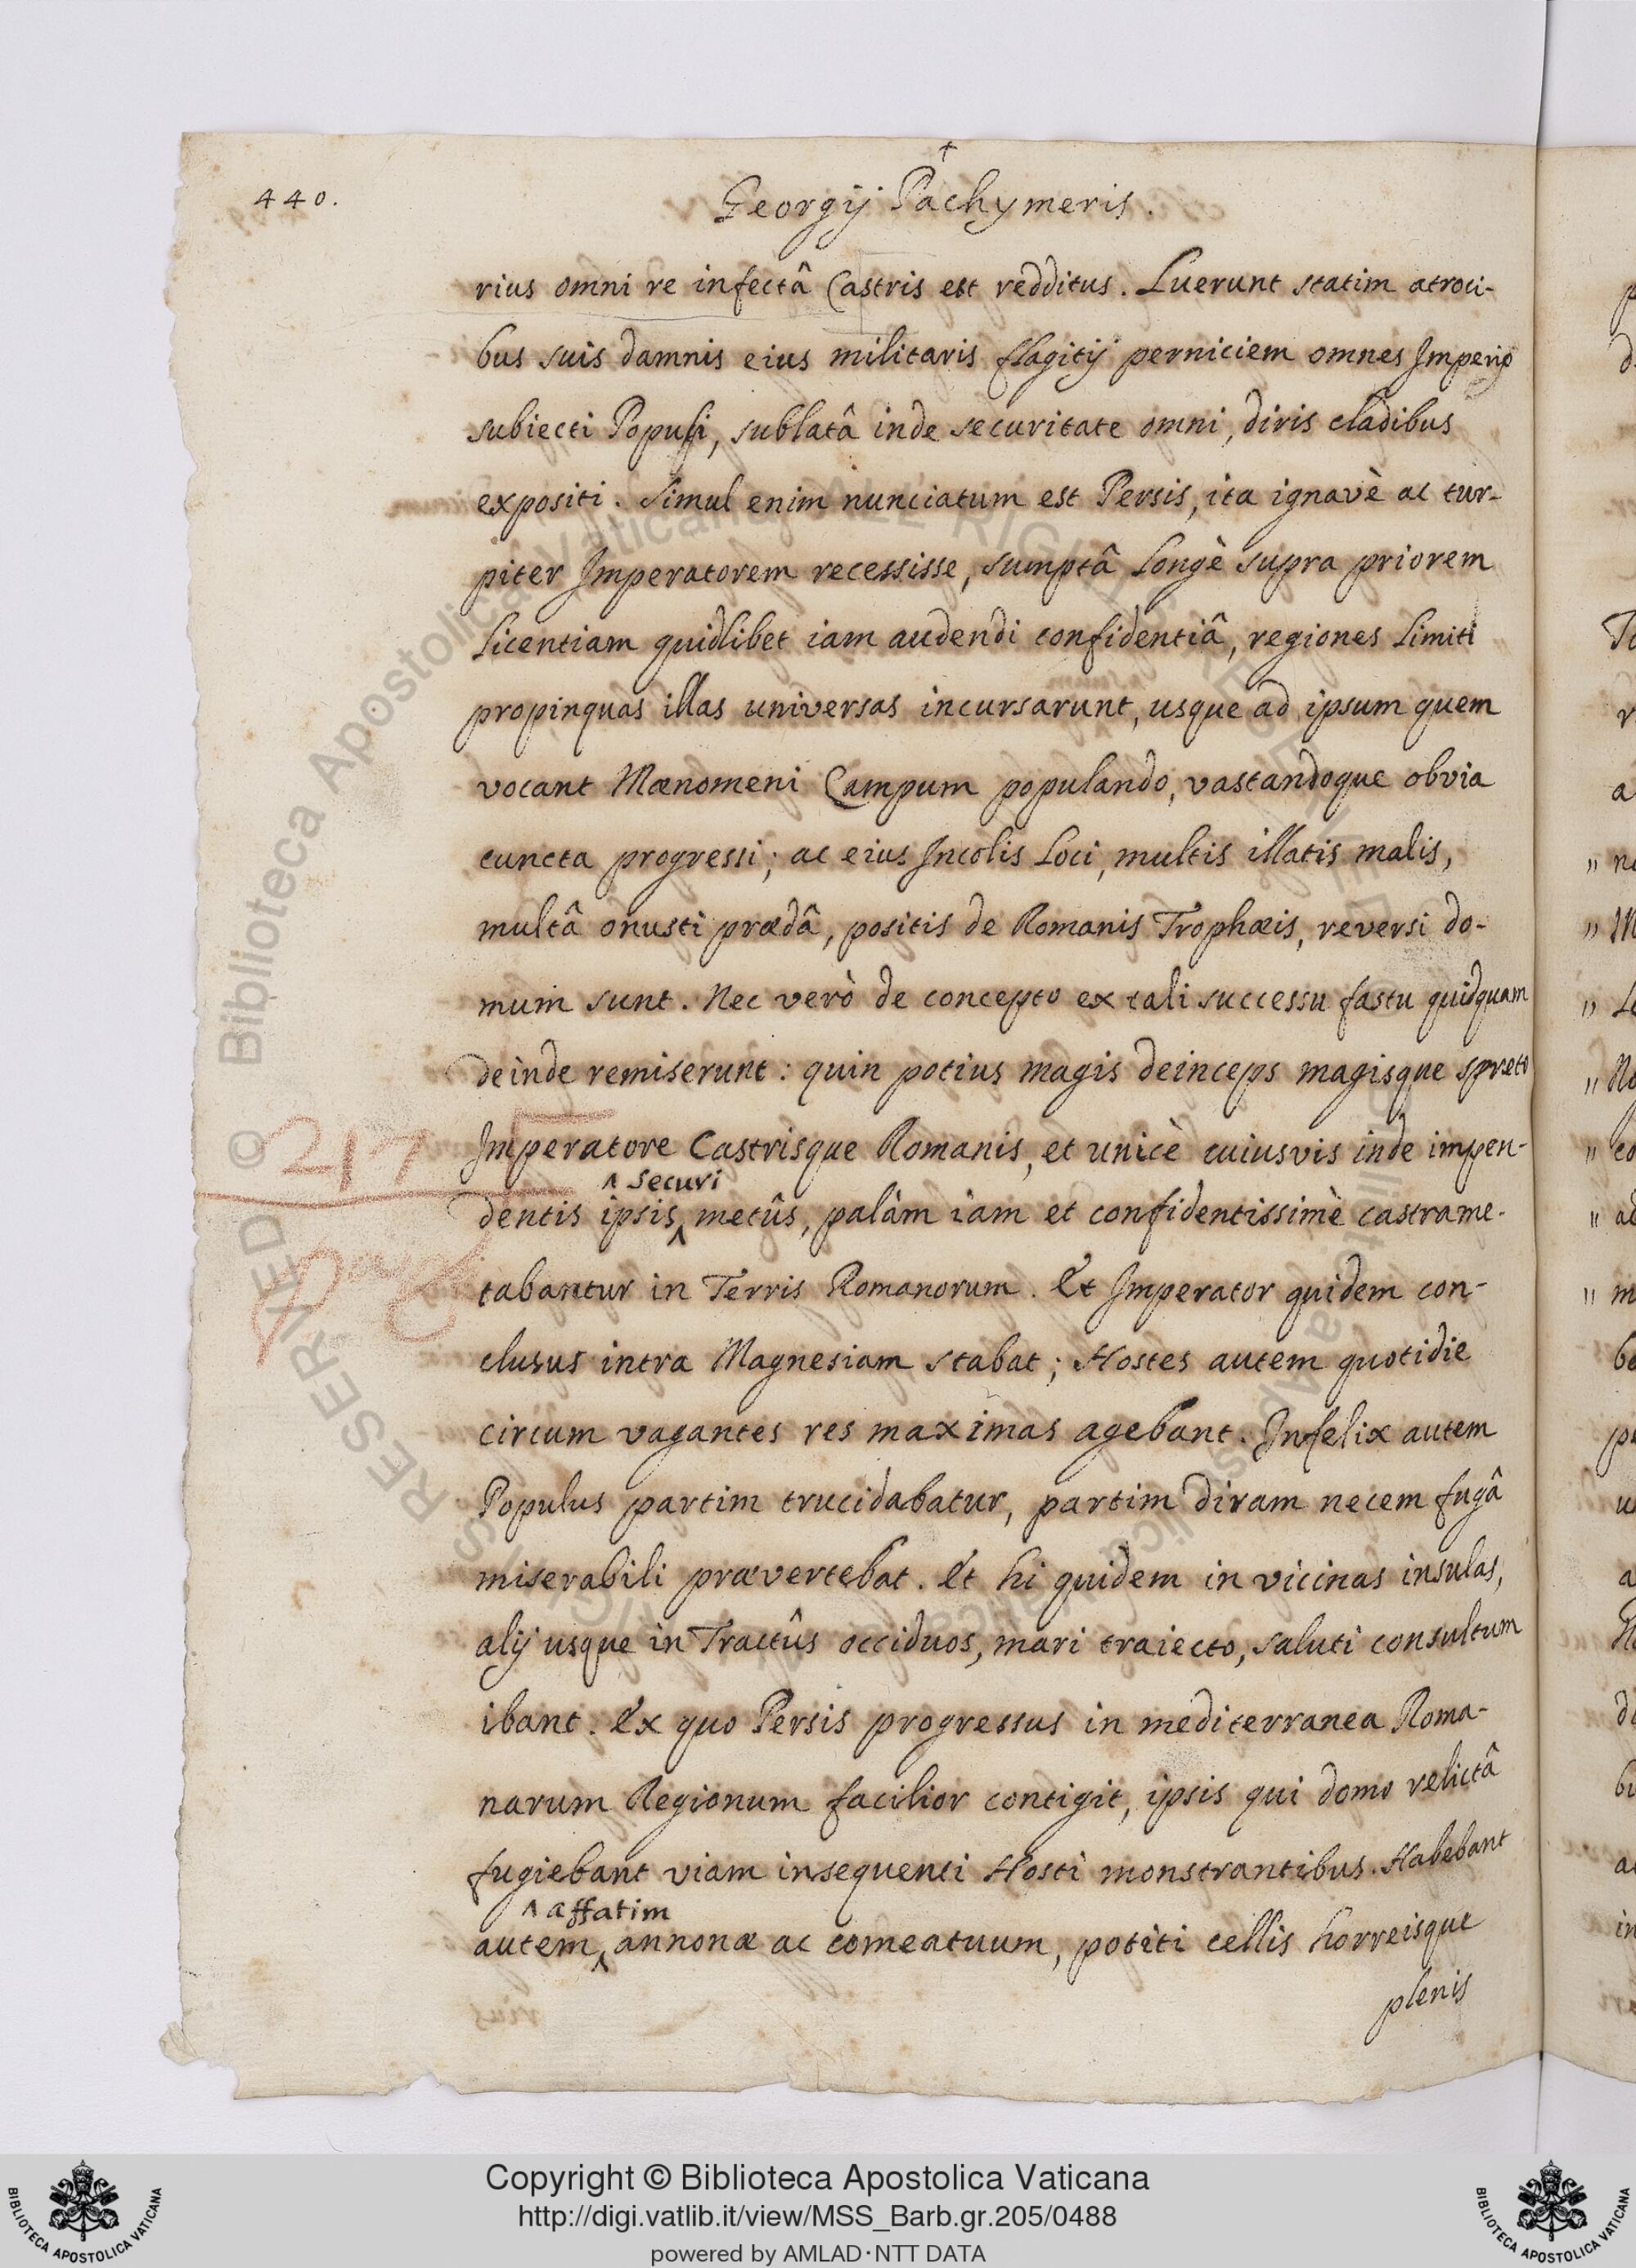 440.
Georgij Pachymeris.
rius omni re infectâ Castris est redditus. Luerunt statim atroci-
bus suis damnis eius militaris flagitij perniciem omnes Imperio
subiecti Populi, sublatâ inde securitate omni, diris cladibus
expositi. Simul enim nunciatum est Persis, ita ignavè ac tur-
piter Imperatorem recessisse, sumptâ longè supra priorem
licentiam quidlibet iam audendi confidentiâ, regiones limiti
propinquas illas universas incursarunt, usque ad ipsum quem
vocant Mænomeni Campum populando, vastandoque obvia
cuncta progressi; ac eius Incolis Loci, multis illatis malis,
multâ onusti prædâ, positis de Romanis Trophæis, reversi do-
mum sunt. Nec verò de concepto ex tali successu fastu quidquam
deinde remiserunt: quin potius magis deinceps magisque spreto
217
Imperatore Castrisque Romanis, et unicè cuiusvis inde impen-
^ securi
dentis ipsis^ metûs, palàm iam et confidentissimè castrame-
tabantur in Terris Romanorum. Et Imperator quidem con-
clusus intra Magnesiam stabat; Hostes autem quotidie
circum vagantes res maximas agebant. Infelix autem
Populus partim trucidabatur, partim diram necem fugâ
miserabili prævertebat. Et hi quidem in vicinas insulas,
alij usque in Tractûs occiduos, mari traiecto, saluti consultum
ibant. Ex quo Persis progressus in mediterranea Roma-
narum Regionum facilior contigit, ipsis qui domo relictâ
fugiebant viam insequenti Hosti monstrantibus. Habebant
^ affatim
autem^ annonæ ac comeatuum, potiti cellis horreisque
plenis
© Biblioteca Apostolica Vaticana ALL RIGHTS RESERVED
Copyright © Biblioteca Apostolica Vaticana
http://digi.vatlib.it/view/MSS_Barb.gr.205/0488
powered by AMLAD·NTT DATA
BIBLIOTECA APOSTOLICA VATICANA
BIBLIOTECA APOSTOLICA VATICANA